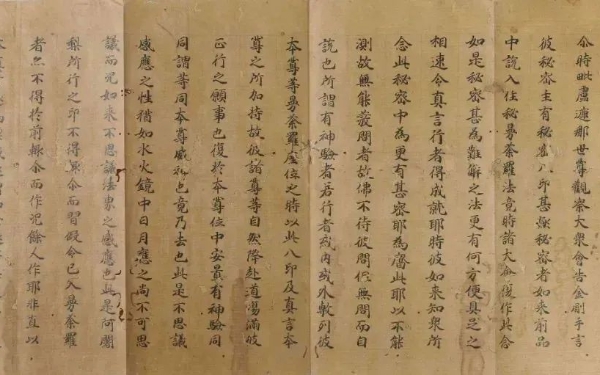 尒時毗盧遮那世尊觀察大衆會告金剛手言
彼秘密主有秘密八印甚極秘密者如来前品
中說入住秘曼荼羅法竟時諸大會復作其念
如是秘密甚為難解之法更有何方便具足之
相速令真言行者得成就耶時彼如来知衆所
念此秘密中為更有甚密耶為齊此耶以不能
測故無能發問者故佛不待彼問從無問而自
說也所謂有神驗者若行者或内或外敷列彼
本尊等曼荼羅座位之時以此八印及真言本
尊之所加持故彼諸尊等自然降赴道場滿彼
正行之願事也復於本尊位中安置有神驗同
同謂等同本尊威神也竟乃去也此是不思議
感應之性猶如水火鏡中日月應之尚不可思
議而况如来不思議法界之感應也此是阿闍
梨所行之印不得尒而習設令已入曼荼羅
者亦不得於前輒尒而作况餘人作耶非直以